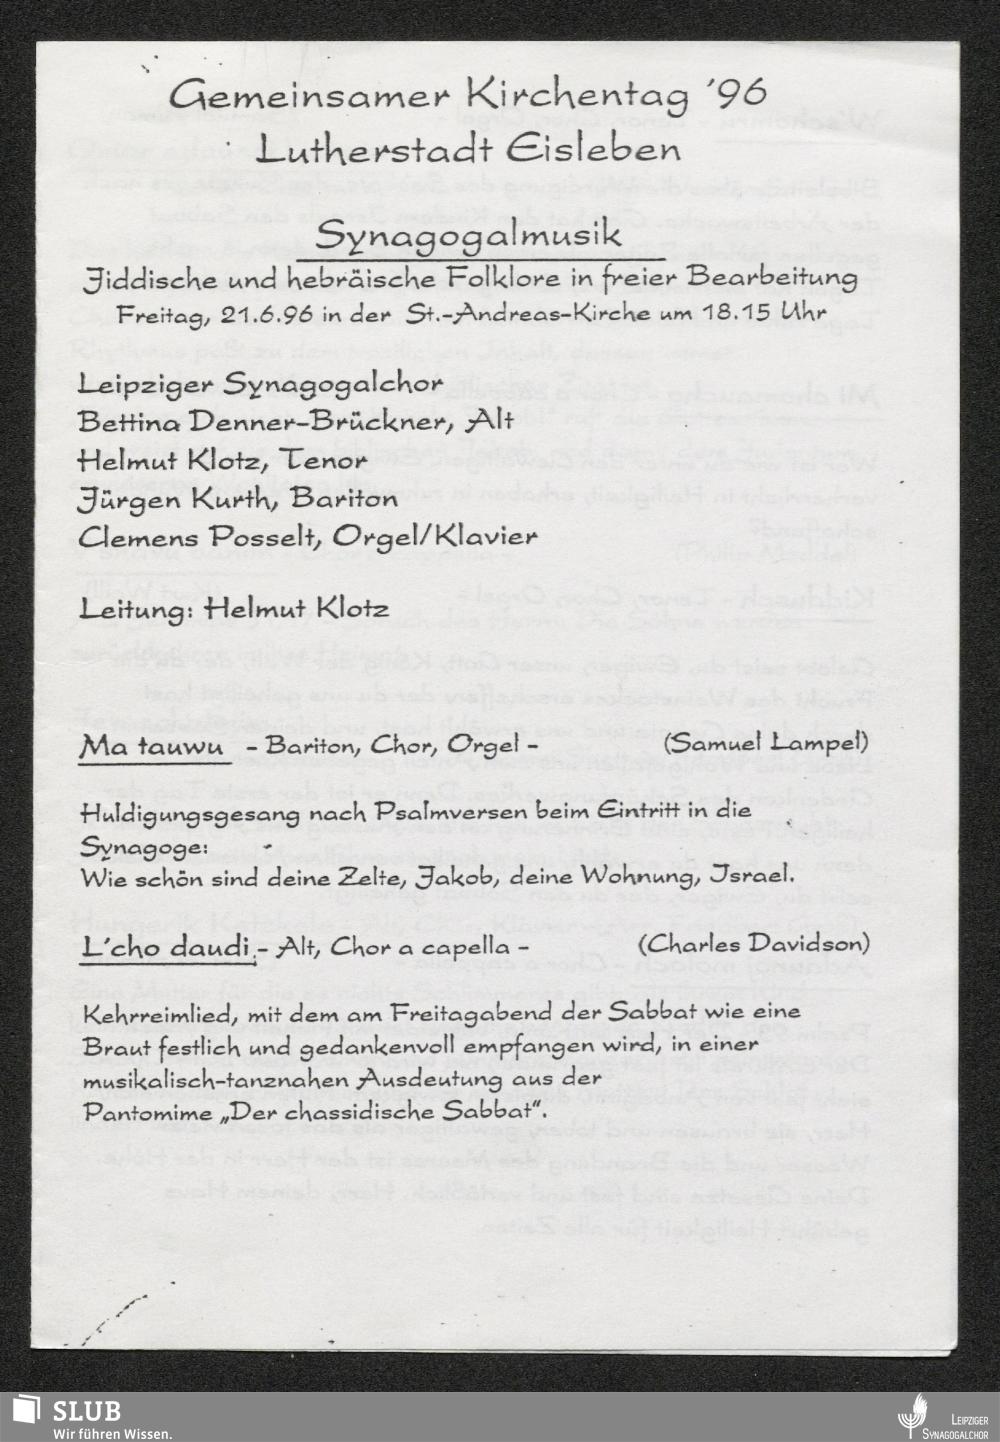 Gemeinsamer Kirchentag '96
Lutherstadt Eisleben
Synagogalmusik
Jiddische und hebräische Folklore in freier Bearbeitung
Freitag, 21.6.96 in der St.-Andreas-Kirche um 18.15 Uhr
Leipziger Synagogalchor
Bettina Denner-Brückner, Alt
Helmut Klotz, Tenor
Jürgen Kurth, Bariton
Clemens Posselt, Orgel/Klavier
Leitung: Helmut Klotz
Ma tauwu - Bariton, Chor, Orgel - (Samuel Lampel)
Huldigungsgesang nach Psalmversen beim Eintritt in die
Synagoge:
Wie schön sind deine Zelte, Jakob, deine Wohnung, Israel.
L'cho daudi - Alt, Chor a capella - (Charles Davidson)
Kehrreimlied, mit dem am Freitagabend der Sabbat wie eine
Braut festlich und gedankenvoll empfangen wird, in einer
musikalisch-tanznahen Ausdeutung aus der
Pantomime „Der chassidische Sabbat“.
SLUB
Wir führen Wissen.
LEIPZIGER
SYNAGOGALCHOR